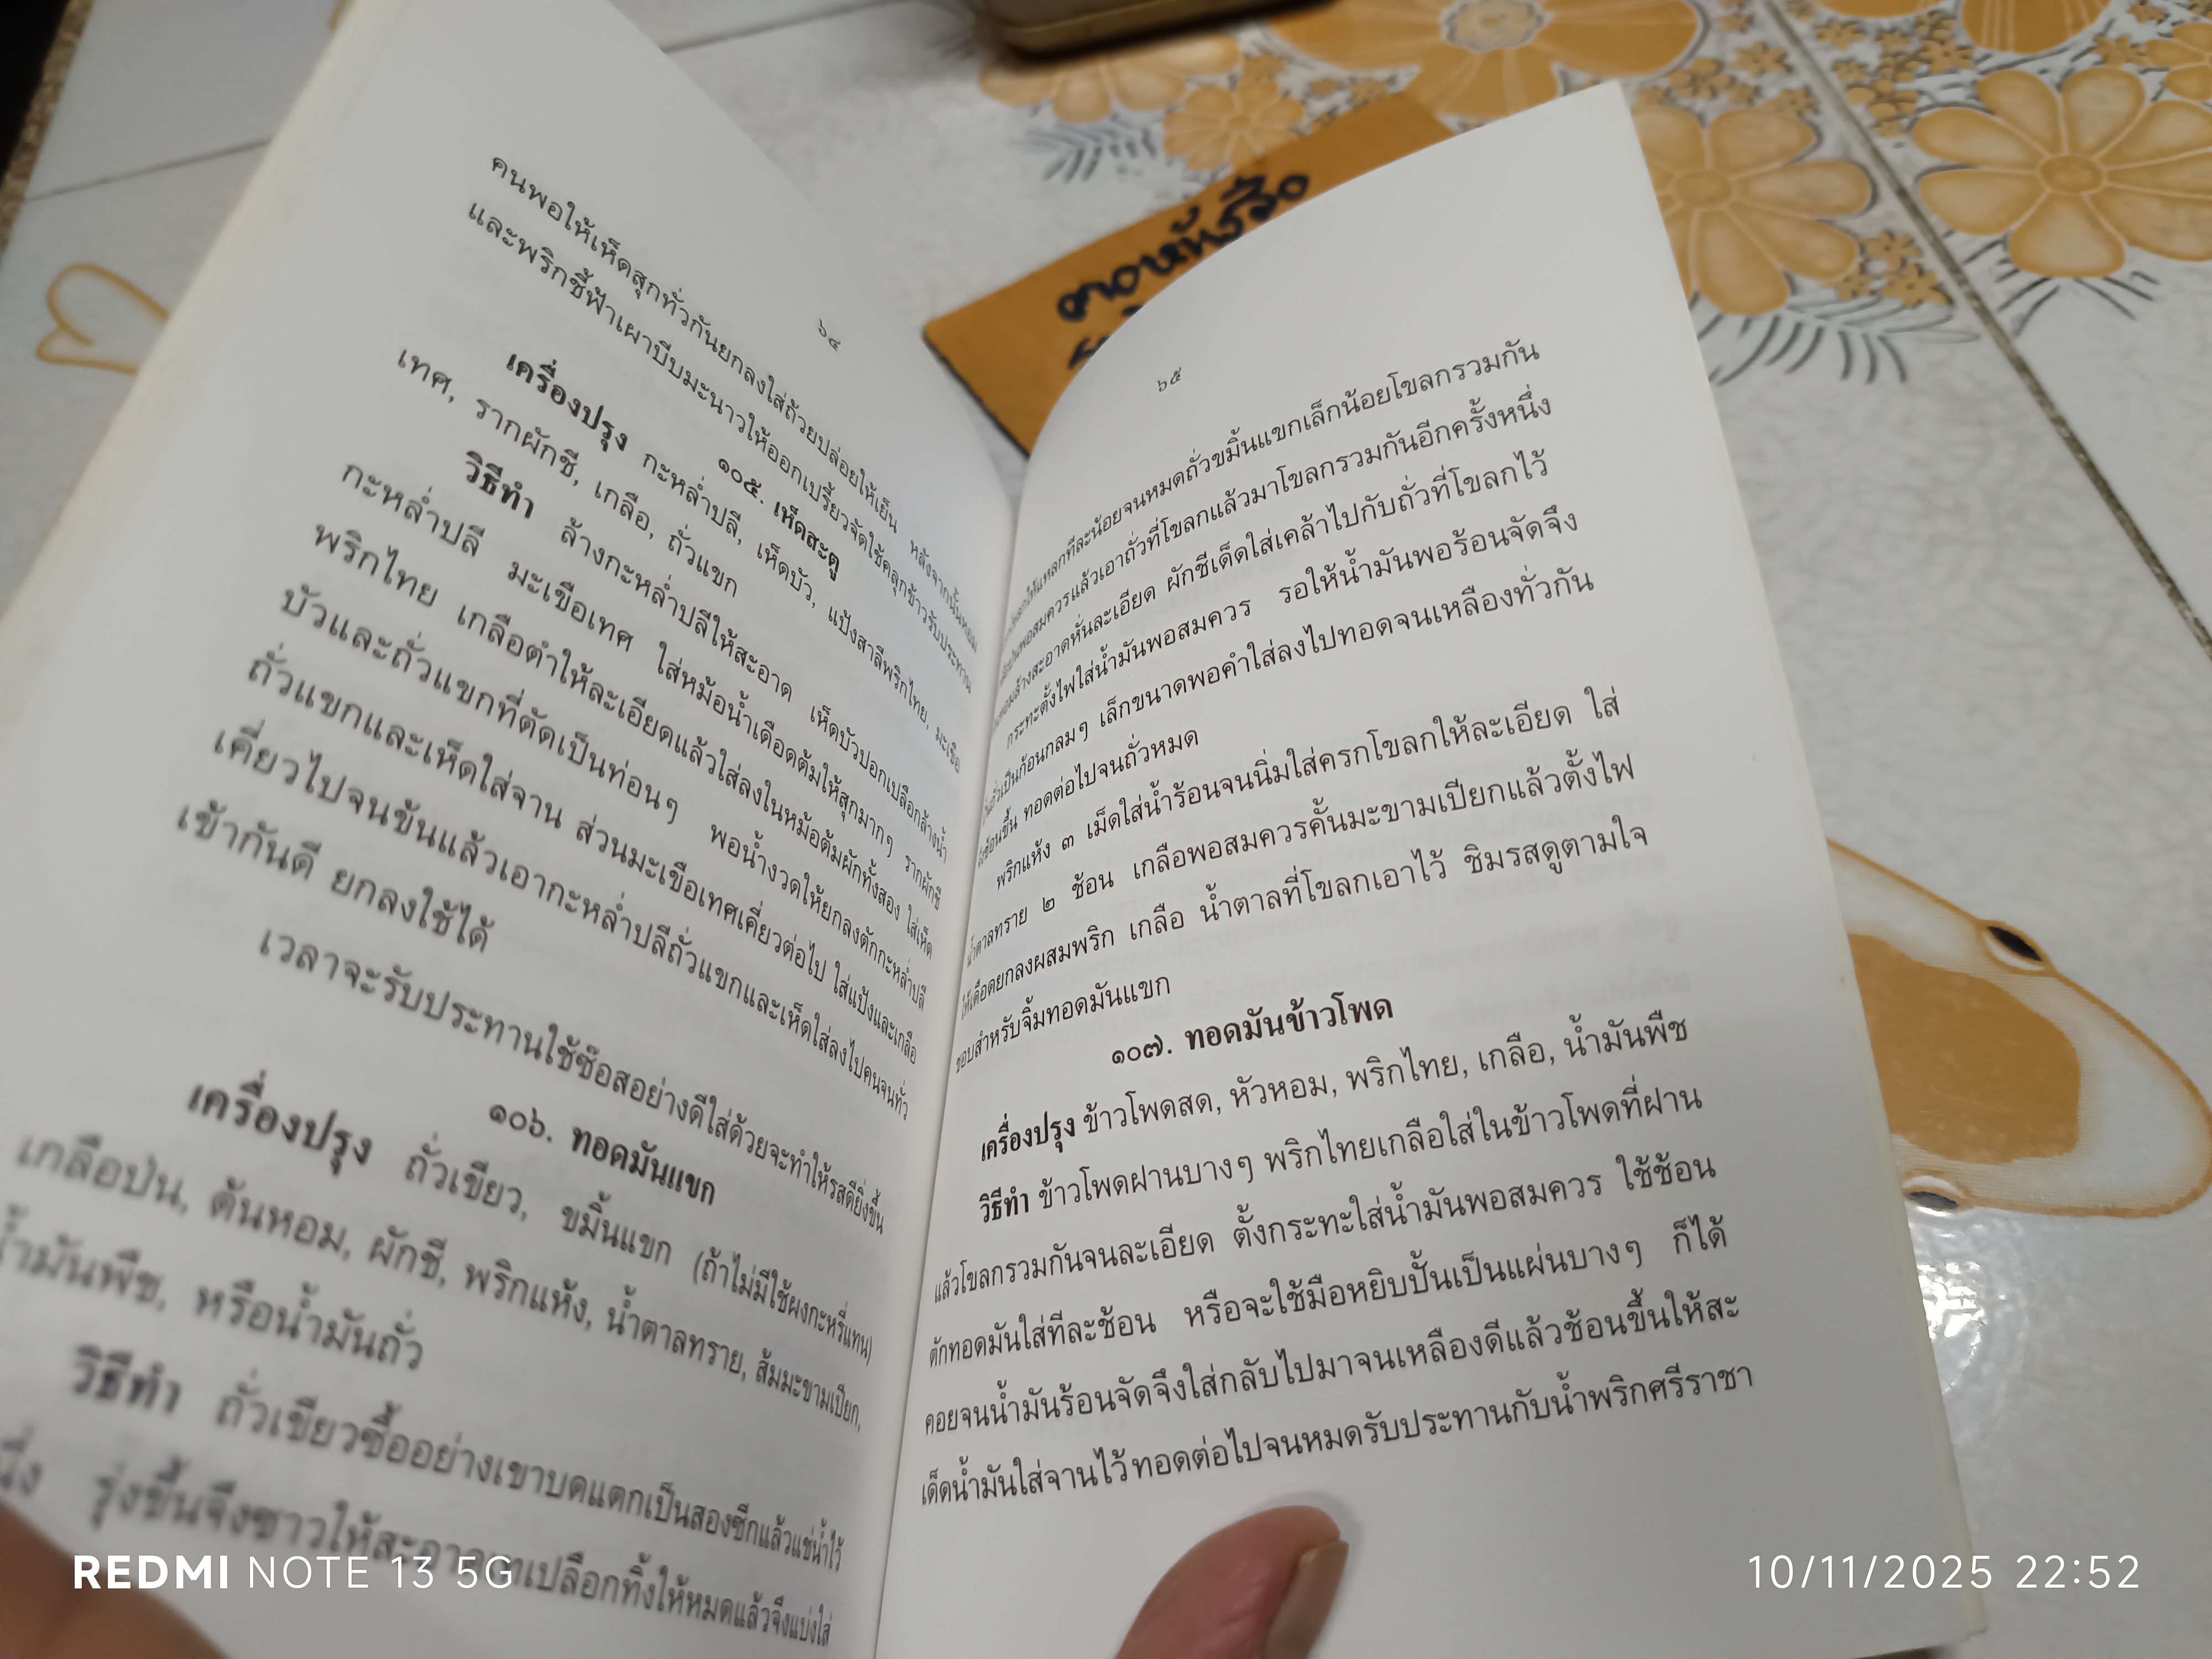 ๖๔
คนพอให้เห็ดสุกทั่วกันยกลงใส่ถ้วยปล่อยให้เย็น หลังจากนั้นหอม
และพริกชี้ฟ้าเผาบีบมะนาวให้ออกเปรี้ยวจัดใช้คลุกข้าวรับประทาน
๑๐๕. เห็ดสะตู
เครื่องปรุง กะหล่ำปลี, เห็ดบัว, แป้งสาลีพริกไทย, มะเขือ
เทศ, รากผักชี, เกลือ, ถั่วแขก
วิธีทำ ล้างกะหล่ำปลีให้สะอาด เห็ดบัวปอกเปลือกล้างน้ำ
กะหล่ำปลี มะเขือเทศ ใส่หม้อน้ำเดือดต้มให้สุกมากๆ รากผักชี
พริกไทย เกลือตำให้ละเอียดแล้วใส่ลงในหม้อต้มผักทั้งสอง ใส่เห็ด
บัวและถั่วแขกที่ตัดเป็นท่อนๆ พอน้ำงวดให้ยกลงตักกะหล่ำปลี
ถั่วแขกและเห็ดใส่จาน ส่วนมะเขือเทศเคี่ยวต่อไป ใส่แป้งและเกลือ
เคี่ยวไปจนข้นแล้วเอากะหล่ำปลีถั่วแขกและเห็ดใส่ลงไปคนจนทั่ว
เข้ากันดี ยกลงใช้ได้
เวลาจะรับประทานใช้ซ๊อสอย่างดีใส่ด้วยจะทำให้รสดียิ่งขึ้น
๑๐๖. ทอดมันแขก
เครื่องปรุง ถั่วเขียว, ขมิ้นแขก (ถ้าไม่มีใช้ผงกะหรี่แทน)
เกลือป่น, ต้นหอม, ผักชี, พริกแห้ง, น้ำตาลทราย, ส้มมะขามเปียก,
น้ำมันพืช, หรือน้ำมันถั่ว
วิธีทำ ถั่วเขียวซื้ออย่างเขาบดแตกเป็นสองซีกแล้วแช่น้ำไว้
รุ่งขึ้นจึงซาวให้สะอาด เปลือกทิ้งให้หมดแล้วจึงแบ่งใส่
๖๕
ทีละน้อยจนหมดถั่วขมิ้นแขกเล็กน้อยโขลกรวมกัน
พอสมควรแล้วเอาถั่วที่โขลกแล้วมาโขลกรวมกันอีกครั้งหนึ่ง
ล้างสะอาดหั่นละเอียด ผักชีเด็ดใส่เคล้าไปกับถั่วที่โขลกไว้
กระทะตั้งไฟใส่น้ำมันพอสมควร รอให้น้ำมันพอร้อนจัดจึง
เป็นก้อนกลมๆ เล็กขนาดพอคำใส่ลงไปทอดจนเหลืองทั่วกัน
ช้อนขึ้น ทอดต่อไปจนถั่วหมด
พริกแห้ง ๓ เม็ดใส่น้ำร้อนจนนิ่มใส่ครกโขลกให้ละเอียด ใส่
น้ำตาลทราย ๒ ช้อน เกลือพอสมควรคั้นมะขามเปียกแล้วตั้งไฟ
ให้เดือดยกลงผสมพริก เกลือ น้ำตาลที่โขลกเอาไว้ ชิมรสดูตามใจ
ชอบสำหรับจิ้มทอดมันแขก
๑๐๗. ทอดมันข้าวโพด
เครื่องปรุง ข้าวโพดสด, หัวหอม, พริกไทย, เกลือ, น้ำมันพืช
วิธีทำ ข้าวโพดฝานบางๆ พริกไทยเกลือใส่ในข้าวโพดที่ฝาน
แล้วโขลกรวมกันจนละเอียด ตั้งกระทะใส่น้ำมันพอสมควร ใช้ช้อน
ตักทอดมันใส่ทีละช้อน หรือจะใช้มือหยิบปั้นเป็นแผ่นบางๆ ก็ได้
คอยจนน้ำมันร้อนจัดจึงใส่กลับไปมาจนเหลืองดีแล้วช้อนขึ้นให้สะ
เด็ดน้ำมันใส่จานไว้ทอดต่อไปจนหมดรับประทานกับน้ำพริกศรีราชา
REDMI NOTE 13 5G
10/11/2025 22:52